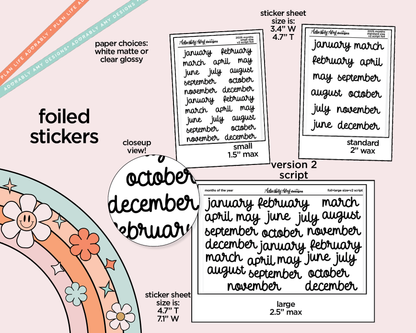 PLAN LIFE ADORABLY! • PLAN LIFE ADORABLY
ADORABLY AMY DESIGNS! • ADORABLY AMY DESIGNS
paper choices:
white matte or
clear glossy
foiled
stickers
sticker sheet
size is:
3.4" W
4.7" T
Adorably Amy Designs
january february
march april may
june july august
september october
november december
january february
march april may
june july august
september october
november december
small
1.5" max
january march
february april
may august
september
october
july november
june december
standard
2" wax
closeup
view!
october
december
february
version 2
script
months of the year
Adorably Amy Designs
january february march
april may june july august
september october november
december january february
march april may june july
august september october
november december
sticker sheet
size is:
4.7" T
7.1" W
large
2.5" max